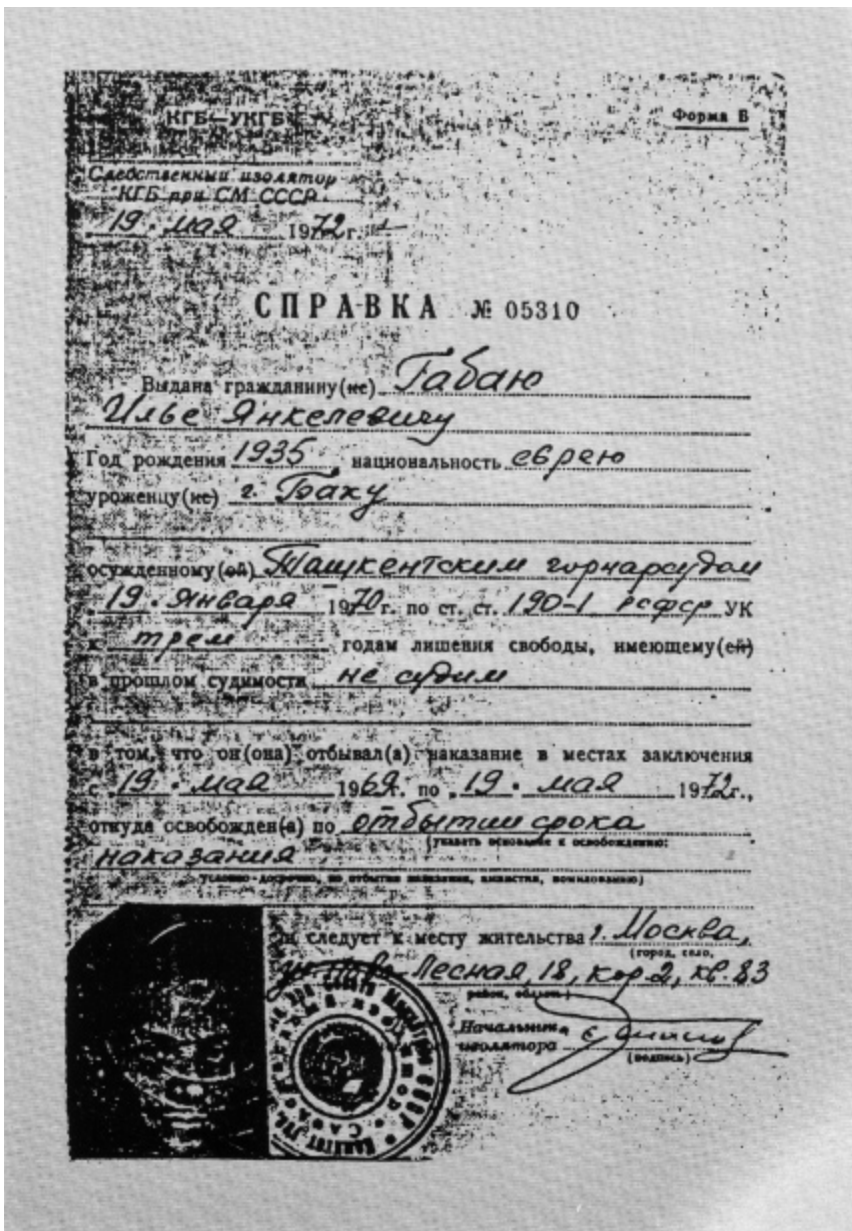 КГБ—УКГБ
Форма В
Следственный изолятор
КГБ при СМ СССР
„19“ мая 1972 г.
СПРАВКА № 05310
Выдана гражданину(ке) Габаю
Илье Янкелевичу
Год рождения 1935, национальность еврею
уроженцу(ке) г. Баку
осужденному(ой) Ташкентским горнарсудом
„19“ января 1970 г. по ст. ст. 190-1 РСФСР УК
к трем годам лишения свободы, имеющему(ей)
в прошлом судимости не судим
в том, что он(она) отбывал(а) наказание в местах заключения
с „19“ мая 1969 г. по „19“ мая 1972 г.,
откуда освобожден(а) по отбытии срока
(указать основание к освобождению:
наказания
условно-досрочно, по отбытии наказания, амнистия, помилование)
и следует к месту жительства г. Москва,
(город, село,
Лесная, 18, кор. 2, кв. 83
район, область)
Начальник
изолятора
(подпись)